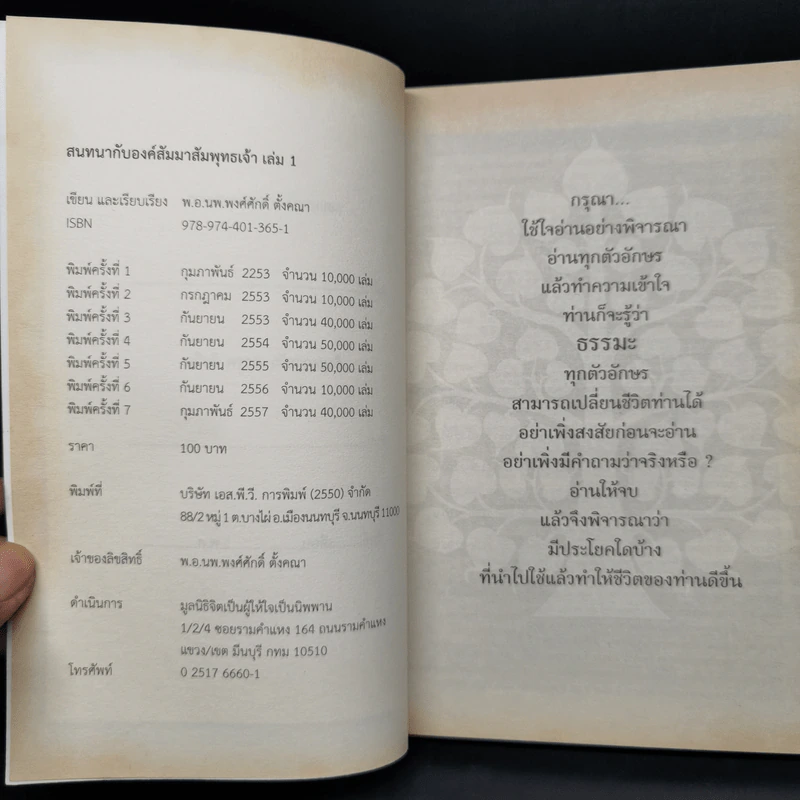 สนทนากับองค์สัมมาสัมพุทธเจ้า เล่ม 1
เขียน และเรียบเรียง พ.อ.นพ.พงศ์ศักดิ์ ตั้งคณา
ISBN 978-974-401-365-1
พิมพ์ครั้งที่ 1 กุมภาพันธ์ 2253 จำนวน 10,000 เล่ม
พิมพ์ครั้งที่ 2 กรกฎาคม 2553 จำนวน 10,000 เล่ม
พิมพ์ครั้งที่ 3 กันยายน 2553 จำนวน 40,000 เล่ม
พิมพ์ครั้งที่ 4 กันยายน 2554 จำนวน 50,000 เล่ม
พิมพ์ครั้งที่ 5 กันยายน 2555 จำนวน 50,000 เล่ม
พิมพ์ครั้งที่ 6 กันยายน 2556 จำนวน 10,000 เล่ม
พิมพ์ครั้งที่ 7 กุมภาพันธ์ 2557 จำนวน 40,000 เล่ม
ราคา 100 บาท
พิมพ์ที่ บริษัท เอส.พี.วี. การพิมพ์ (2550) จำกัด
88/2 หมู่ 1 ต.บางไผ่ อ.เมืองนนทบุรี จ.นนทบุรี 11000
เจ้าของลิขสิทธิ์ พ.อ.นพ.พงศ์ศักดิ์ ตั้งคณา
ดำเนินการ มูลนิธิจิตเป็นผู้ให้ใจเป็นนิพพาน
1/2/4 ซอยรามคำแหง 164 ถนนรามคำแหง
แขวง/เขต มีนบุรี กทม 10510
โทรศัพท์ 0 2517 6660-1
กรุณา...
ใช้ใจอ่านอย่างพิจารณา
อ่านทุกตัวอักษร
แล้วทำความเข้าใจ
ท่านก็จะรู้ว่า
ธรรมะ
ทุกตัวอักษร
สามารถเปลี่ยนชีวิตท่านได้
อย่าเพิ่งสงสัยก่อนจะอ่าน
อย่าเพิ่งมีคำถามว่าจริงหรือ ?
อ่านให้จบ
แล้วจึงพิจารณาว่า
มีประโยคใดบ้าง
ที่นำไปใช้แล้วทำให้ชีวิตของท่านดีขึ้น